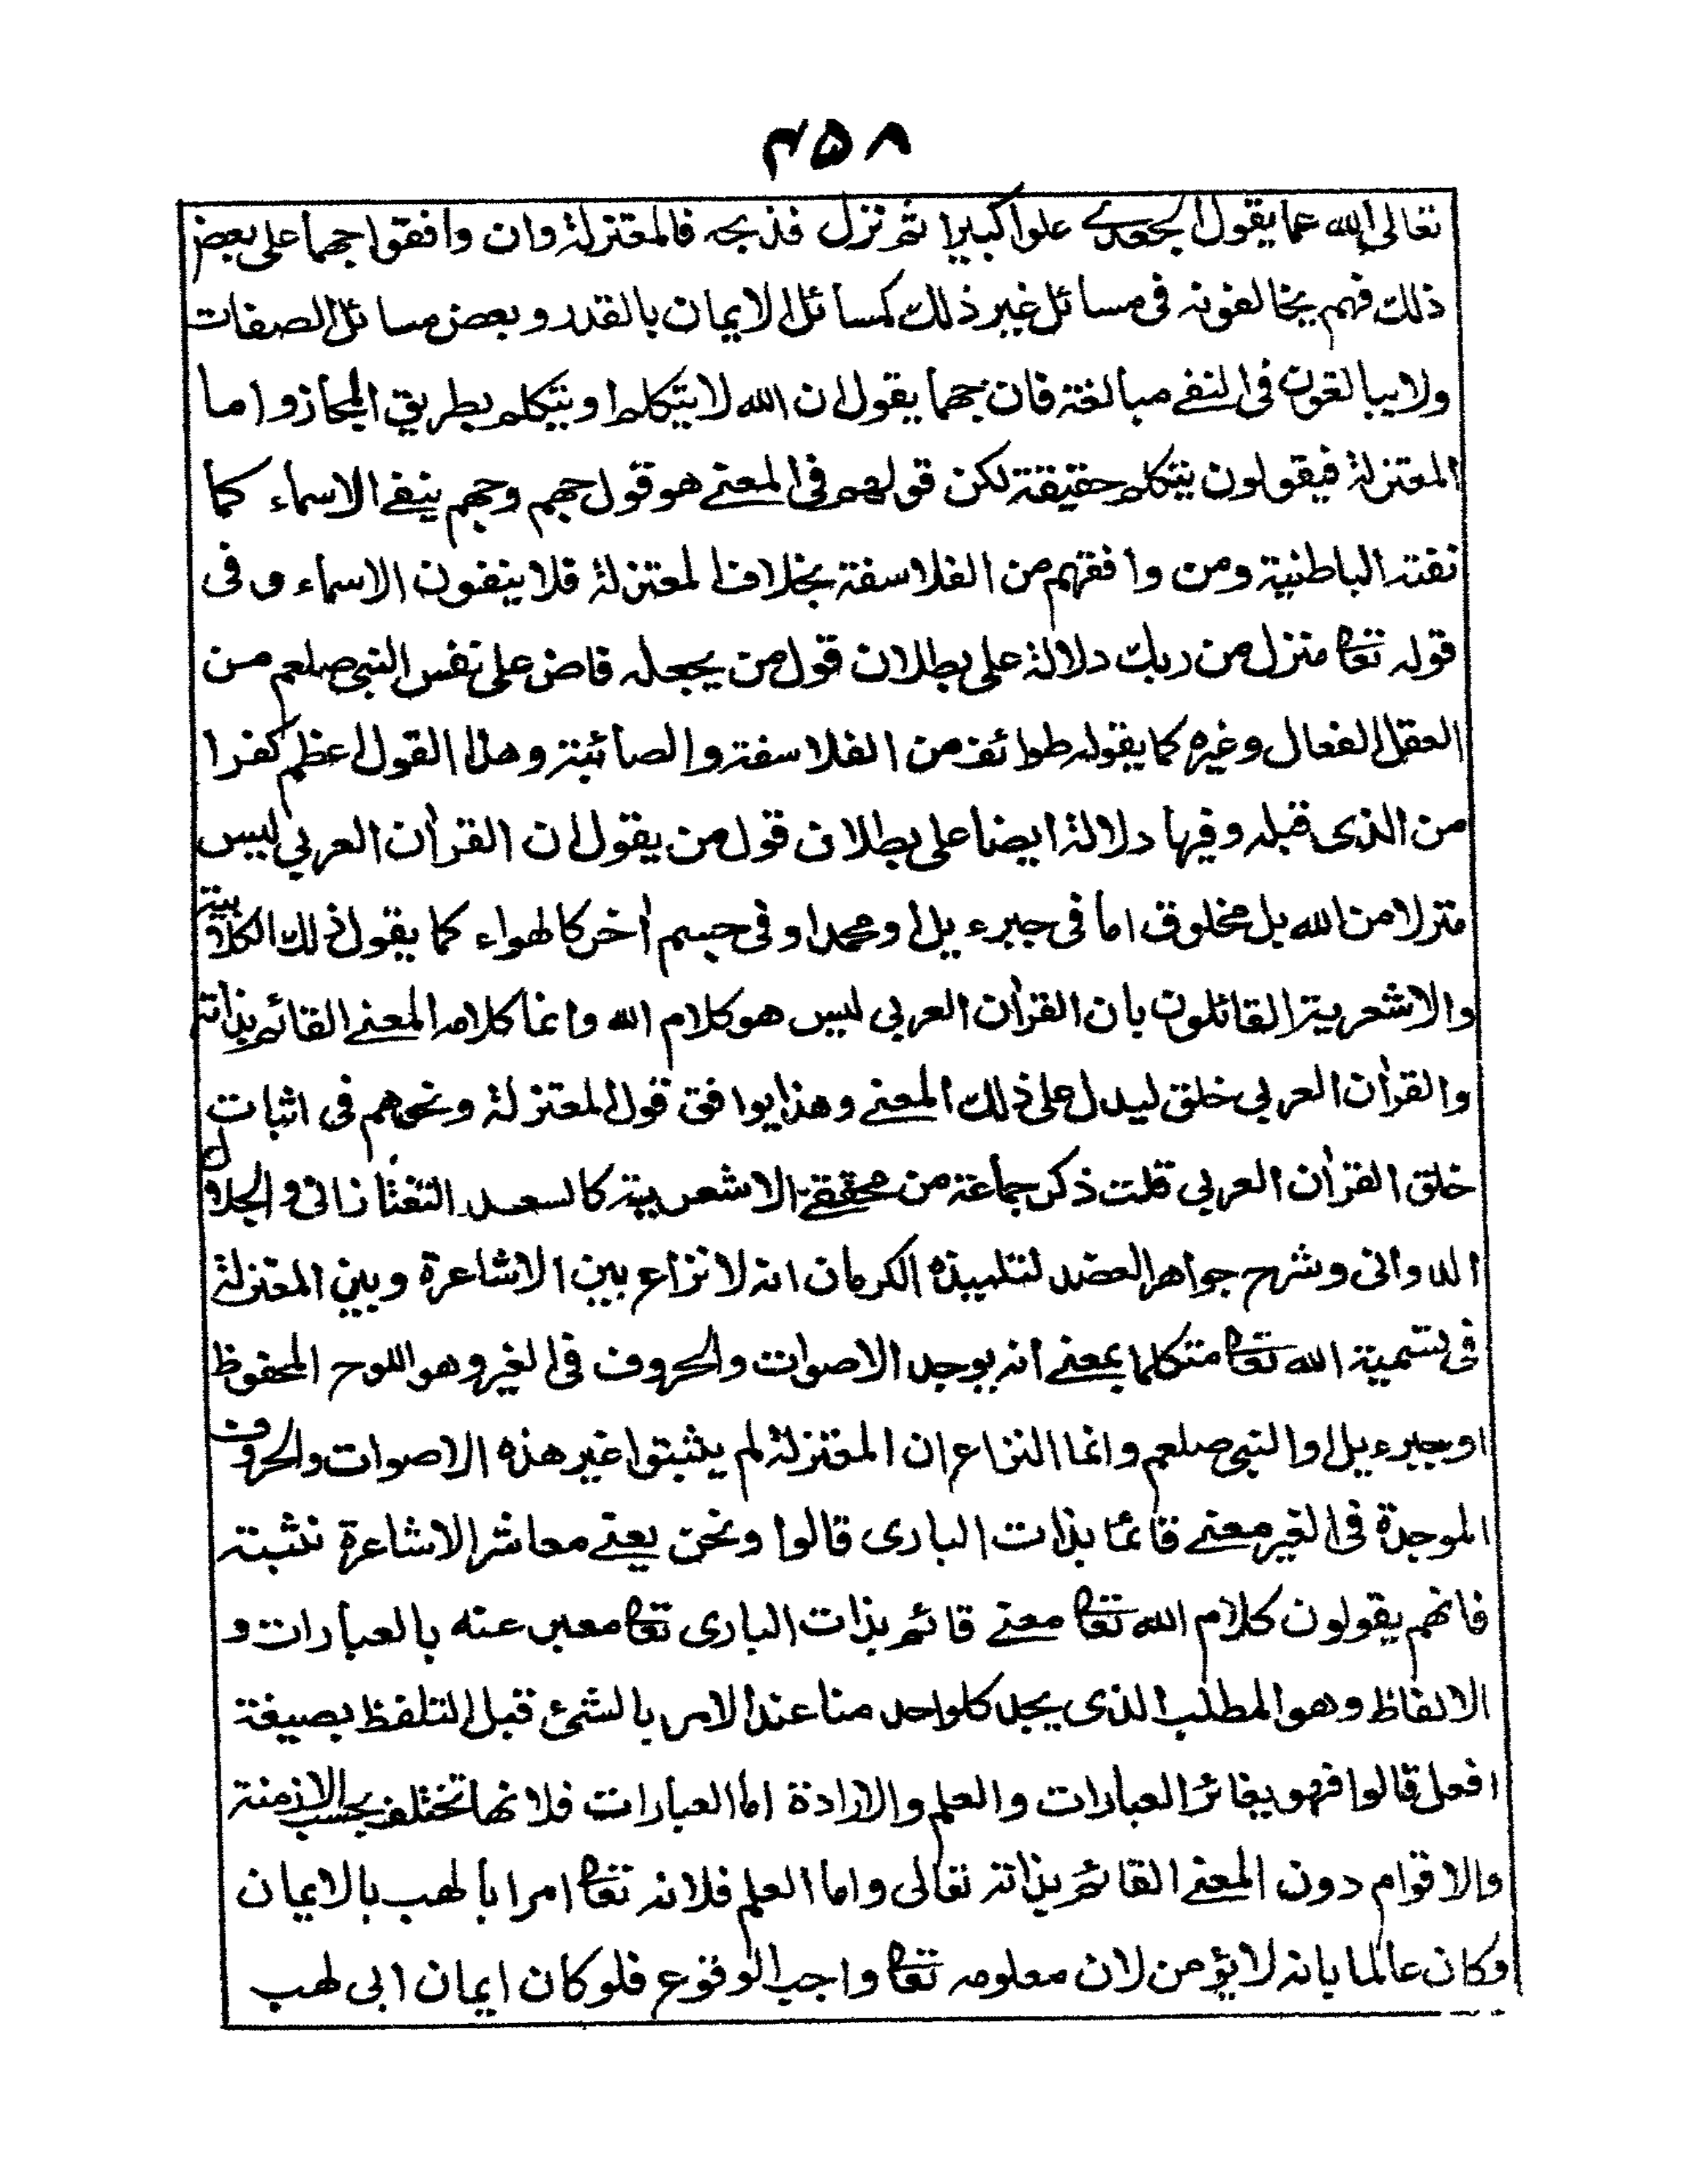 ۴۵۸
تعالى الله عما يقول الجعدى علوا كبيرا ثم نزل فذبحه فالمعتزلة وان وافقوا جهما على بعض
ذلك فهم يخالفونه فى مسائل غير ذلك كمسائل الايمان بالقدر و بعض مسائل الصفات
ولا يبالغون فى النفى مبالغته فان جهما يقول ان الله لا يتكلم او يتكلم بطريق المجاز واما
المعتزلة فيقولون يتكلم حقيقة لكن قولهم فى المعنى هو قول جهم وجهم ينفى الاسماء كما
نفته الباطنية ومن وافقهم من الفلاسفة بخلاف المعتزلة فلا ينفون الاسماء و فى
قوله تعا منزل من ربك دلالة على بطلان قول من يجعله فاض على نفس النبى صلعم من
العقل الفعال وغيره كما يقوله طوائف من الفلاسفة والصائبة وهذا القول اعظم كفرا
من الذى قبله وفيها دلالة ايضا على بطلان قول من يقول ان القرأن العربي ليس
منزلا من الله بل مخلوق اما فى جبرءيل او محمد او فى جسم أخر كالهواء كما يقول ذلك الكلابية
والاشعرية القائلون بان القرأن العربي ليس هو كلام الله وانما كلامه المعنى القائم بذاته
والقرأن العربي خلق ليدل على ذلك المعنى وهذا يوافق قول المعتزلة ونحوهم فى اثبات
خلق القرأن العربي قلت ذكر جماعة من محققى الاشعرية كالسعد التفتازانى والجلال
الدوانى وشرح جواهر العضد لتلميذه الكرمان انه لا نزاع بين الاشاعرة وبين المعتزلة
فى تسمية الله تعا متكلما بمعنى انه يوجد الاصوات والحروف فى الغير وهو اللوح المحفوظ
او جبرءيل او النبى صلعم وانما النزاع ان المعتزلة لم يثبتوا غير هذه الاصوات والحروف
الموجدة فى الغير معنى قائما بذات البارى قالوا ونحن يعنى معاشر الاشاعرة نثبته
فانهم يقولون كلام الله تعا معنى قائم بذات البارى تعا معبر عنه بالعبارات و
الالفاظ وهو المطلب الذى يجد كلواحد منا عند الامر بالشئ قبل التلفظ بصيغة
افعل قالوا فهو يغائر العبارات والعلم والارادة اما العبارات فلانها تختلف بحسب الازمنة
والاقوام دون المعنى القائم بذاته تعالى واما العلم فلانه تعا امر ابا لهب بالايمان
وكان عالما بانه لا يؤمن لان معلومه تعا واجب الوقوع فلو كان ايمان ابى لهب